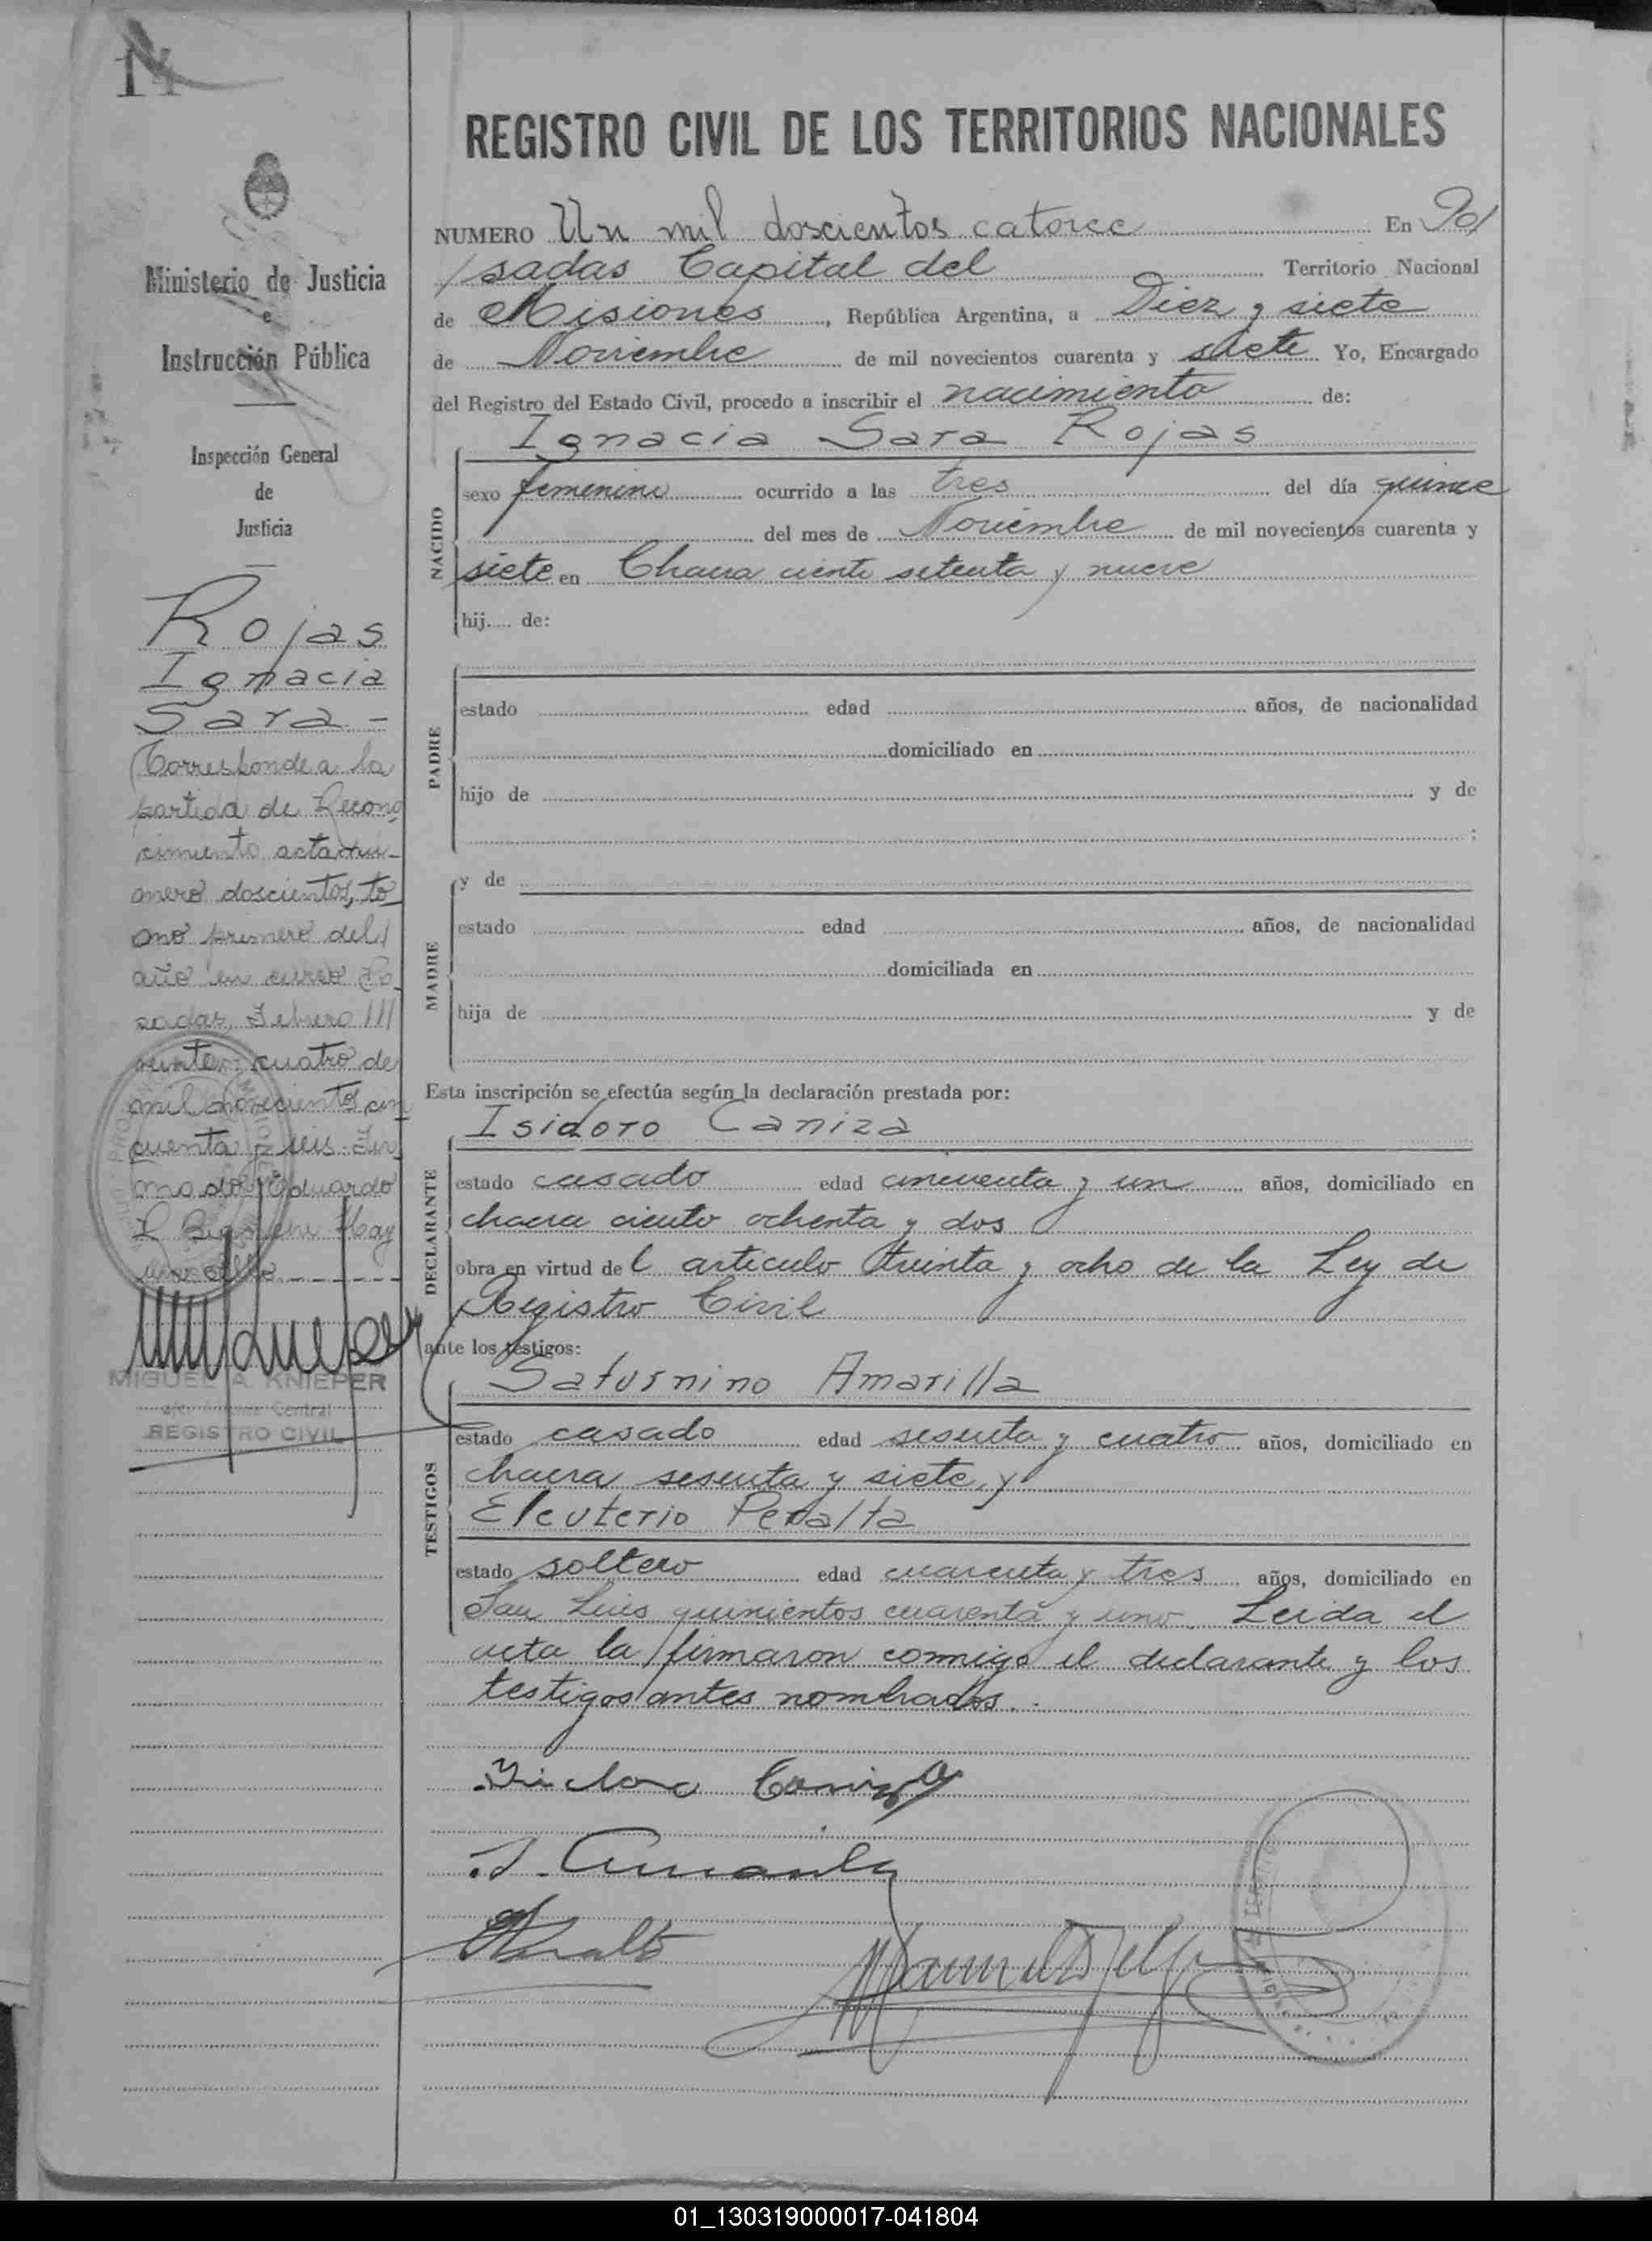 14
REGISTRO CIVIL DE LOS TERRITORIOS NACIONALES
NUMERO Un mil doscientos catorce En Po/
/sadas Capital del Territorio Nacional
de Misiones, República Argentina, a Diez y siete
de Noviembre de mil novecientos cuarenta y siete Yo, Encargado
del Registro del Estado Civil, procedo a inscribir el nacimiento de:
Ignacia Sara Rojas
NACIDO
sexo femenino ocurrido a las tres del día quince
del mes de Noviembre de mil novecientos cuarenta y
siete en Chacra ciento setenta y nueve
hij.... de:
PADRE
estado edad años, de nacionalidad
domiciliado en
hijo de y de
;
MADRE
y de
estado edad años, de nacionalidad
domiciliada en
hija de y de
Esta inscripción se efectúa según la declaración prestada por:
Isidoro Caniza
DECLARANTE
estado casado edad cincuenta y un años, domiciliado en
chacra ciento ochenta y dos
obra en virtud de l articulo treinta y ocho de la Ley de
Registro Civil
ante los testigos:
Saturnino Amarilla
TESTIGOS
estado casado edad sesenta y cuatro años, domiciliado en
chacra sesenta y siete, y
Eleuterio Peralta
estado soltero edad cuarenta y tres años, domiciliado en
San Luis quinientos cuarenta y uno. Leida el
acta la firmaron conmigo el declarante y los
testigos antes nombrados.
Isidoro Caniza
S. Amarilla
Peralta
Ministerio de Justicia
e
Instrucción Pública
Inspección General
de
Justicia
Rojas
Ignacia
Sara -
Corresponde a la
partida de Recono
cimiento acta nú-
mero doscientos, to
mo primero del/
año en curso Po
sadas, Febrero ///
veinte y cuatro de
mil novecientos cin
cuenta y seis. Fir
mado: Eduardo
L. Hay
un sello
MIGUEL A. KNIEPER
Central
REGISTRO CIVIL
01_130319000017-041804